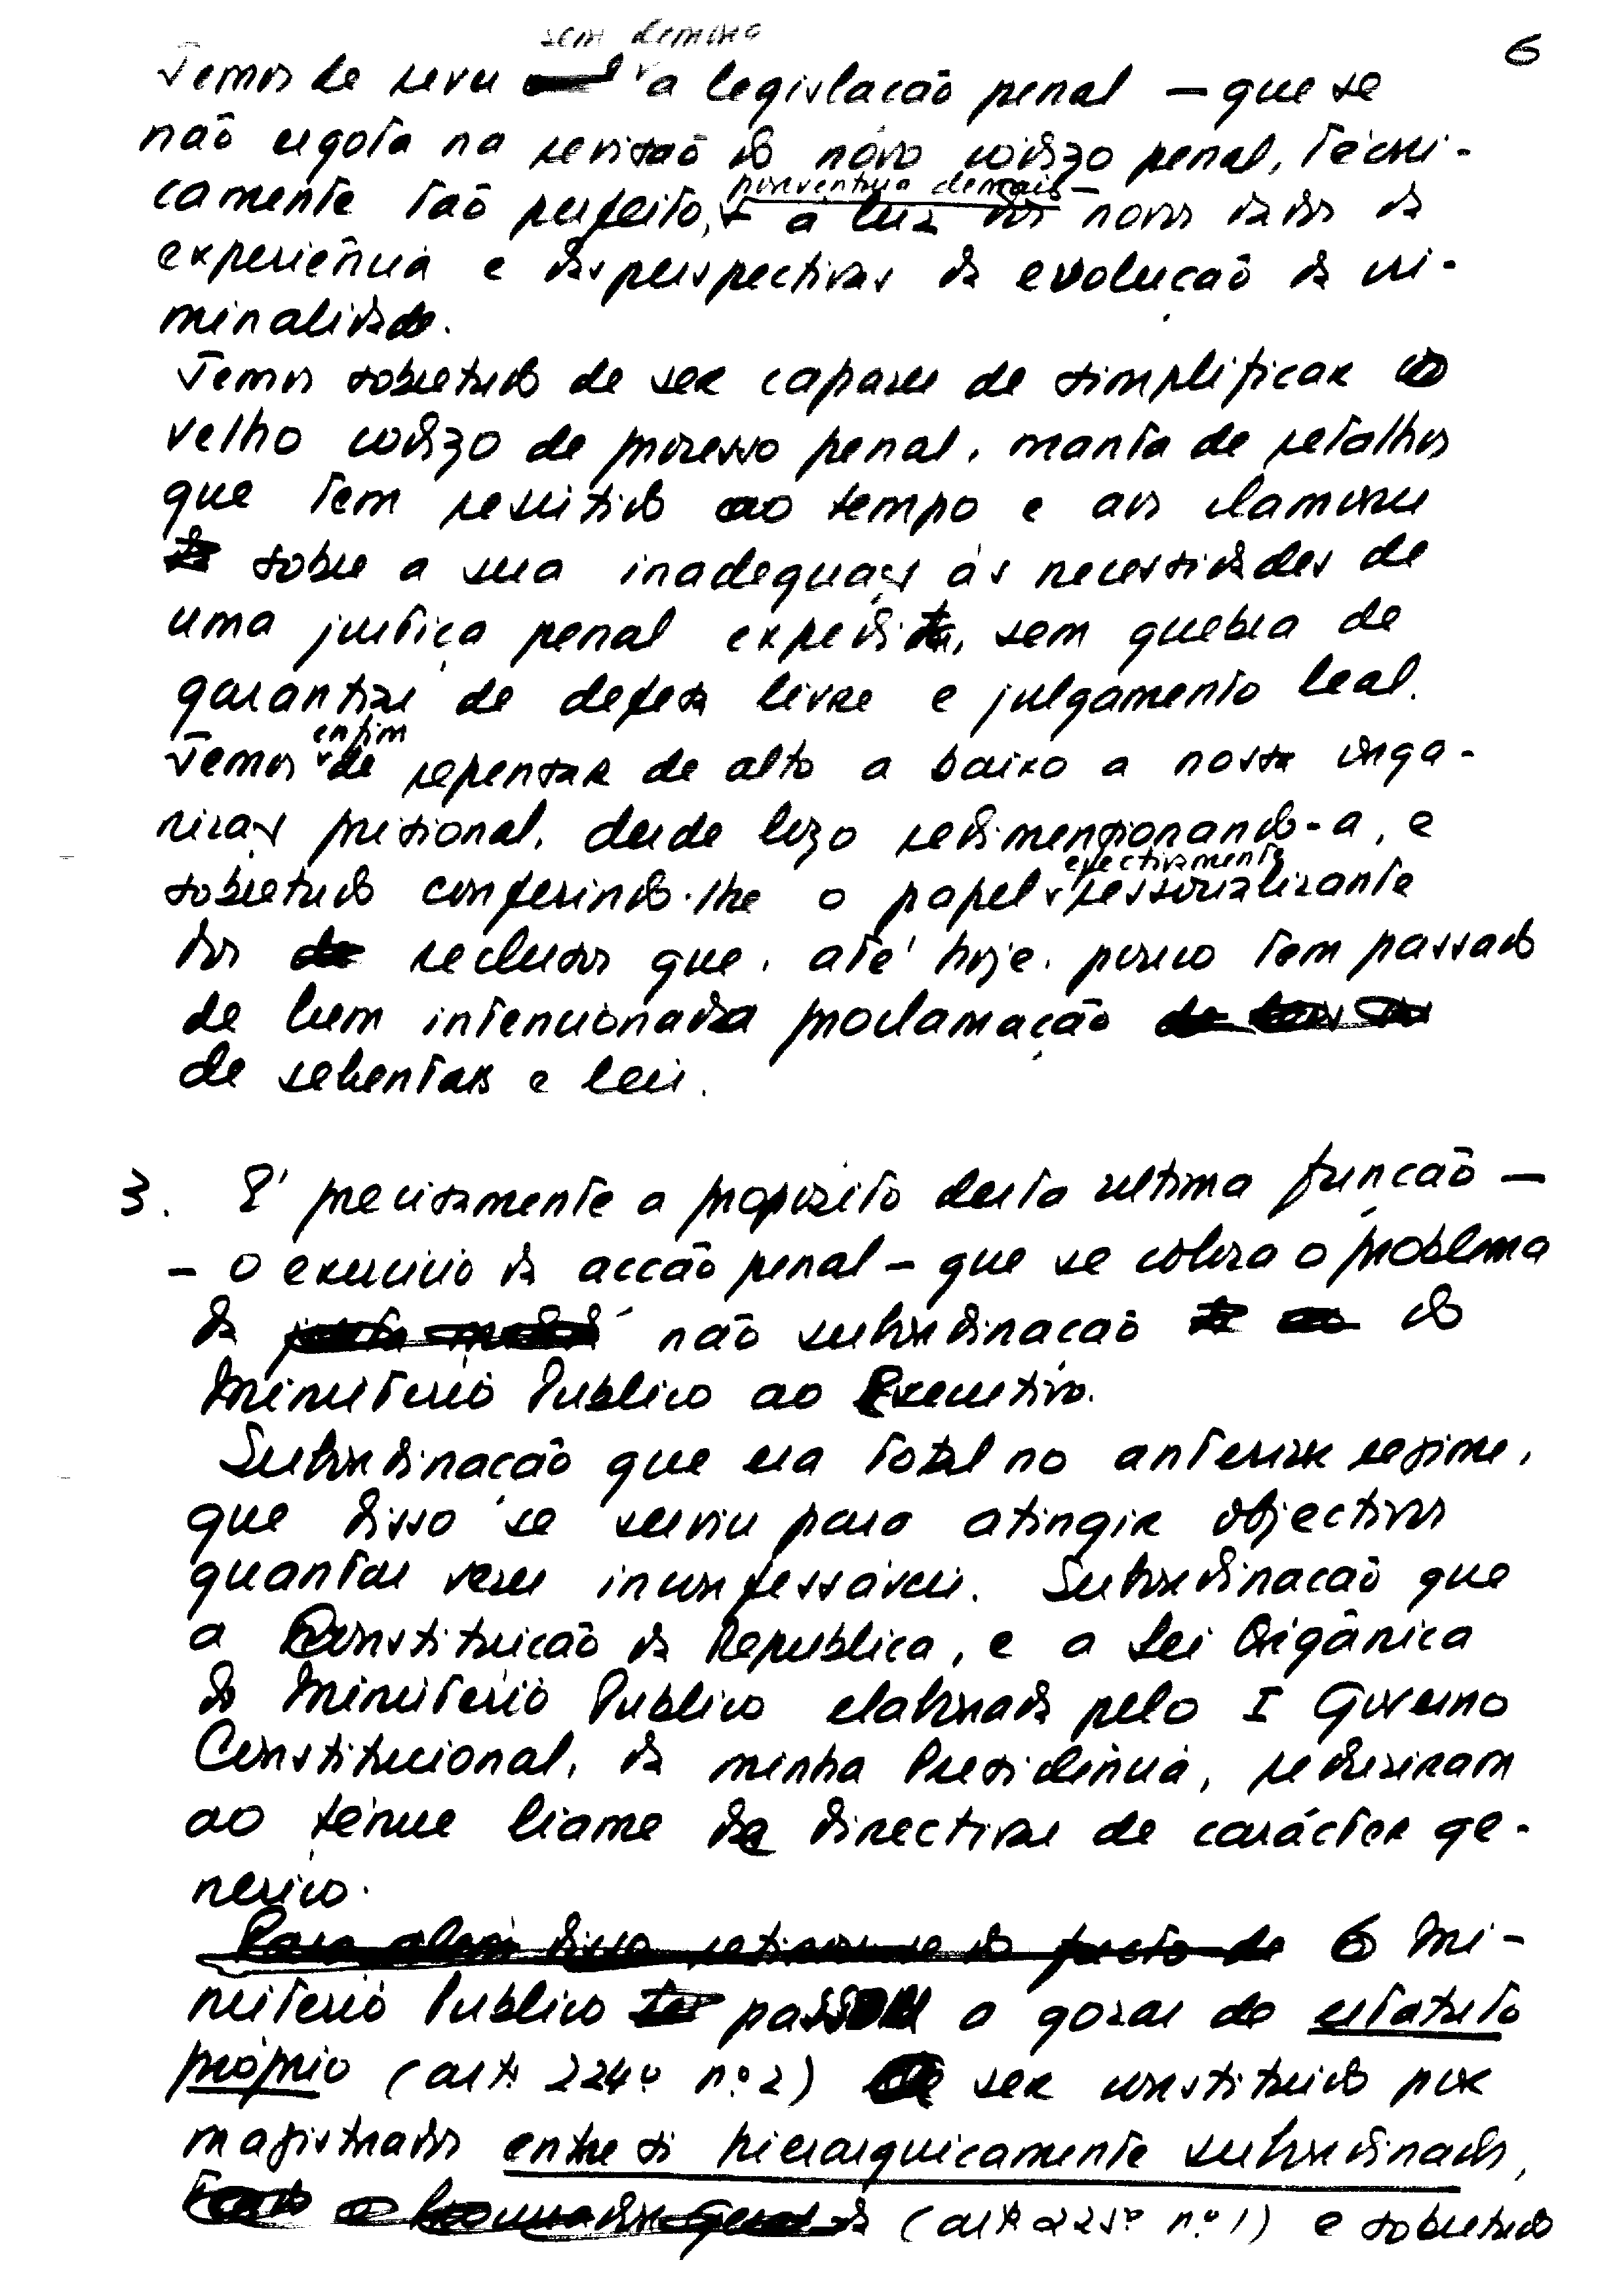 6
sem demora
Temos de rever a legislação penal — que se
não esgota na revisão do novo código penal, técni-
porventura demais —
camente tão perfeito, — à luz dos novos dados da
experiência e das perspectivas da evolução da cri-
minalidade.
Temos sobretudo de ser capazes de simplificar o
velho código de processo penal, manta de retalhos
que tem resistido ao tempo e aos clamores
sobre a sua inadequação às necessidades de
uma justiça penal expedita, sem quebra de
garantias de defesa livre e julgamento leal.
enfim
Temos de repensar de alto a baixo a nossa orga-
nização prisional, desde logo redimensionando-a, e
efectivamente
sobretudo conferindo-lhe o papel ressocializante
dos reclusos que, até hoje, pouco tem passado
de bem intencionada proclamação
de sebentas e leis.
3. É precisamente a propósito desta ultima função —
— o exercício da acção penal — que se coloca o problema
da não subordinação do
Ministério Publico ao Executivo.
Subordinação que era total no anterior regime,
que disso se serviu para atingir objectivos
quantas vezes inconfessáveis. Subordinação que
a Constituição da Republica, e a Lei Orgânica
do Ministério Publico elaborada pelo I Governo
Constitucional, da minha Presidência, reduziram
ao ténue liame de directivas de carácter ge-
nérico.
Para além disso retirou-se do facto de O Mi-
nistério Publico passou a gozar de estatuto
próprio (artº 224º nº 2) ser constituido por
magistrados entre si hierarquicamente subordinados,
(artº 225º nº 1) e sobretudo